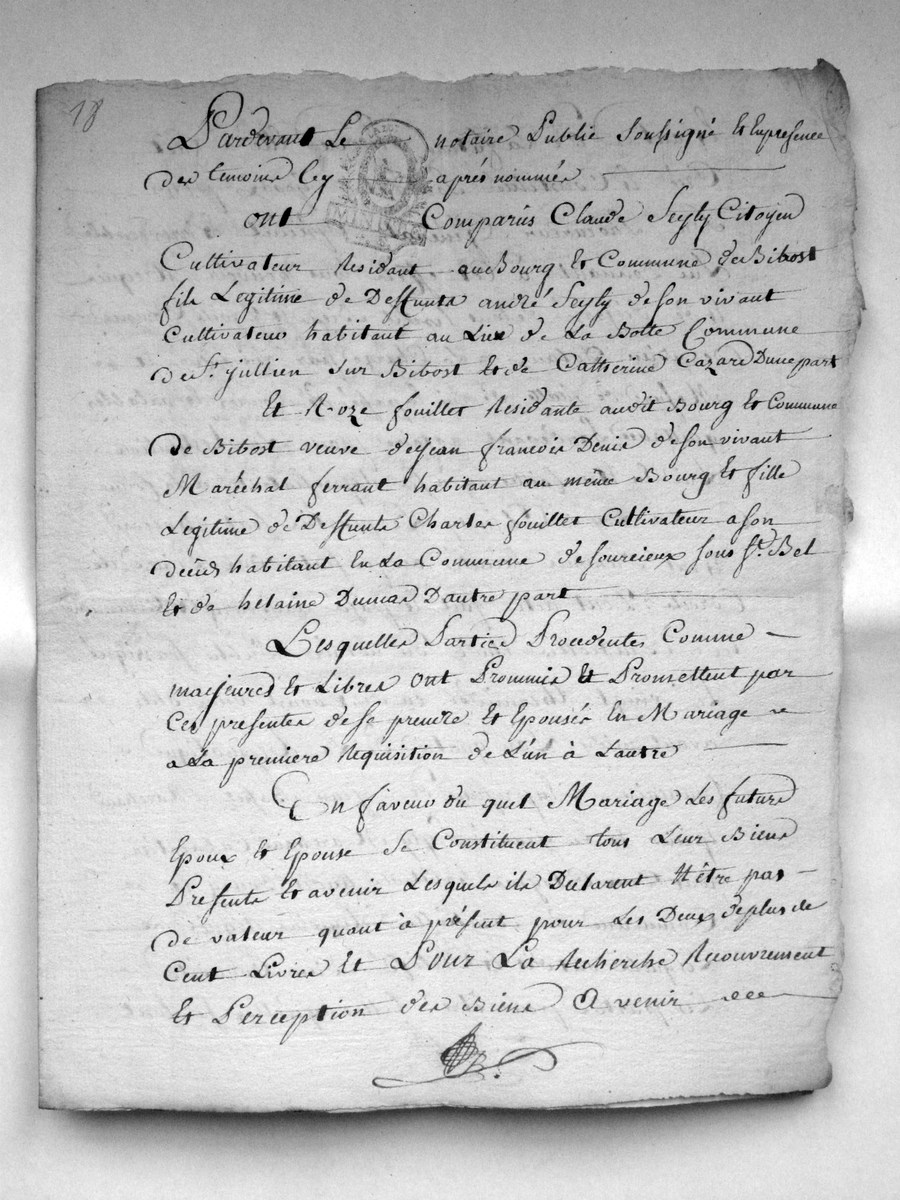 18
Pardevant Le notaire Public Soussigné Et Enpresence
des temoins Cy aprés nommés
ont Comparus Claude Seyly Citoyen
Cultivateur Residant au Bourg Et Commune de Bibost
fils Legitime de Deffunts andré Seyly de son vivant
Cultivateur habitant au Lieu de La Botte Commune
de St. jullien sur Bibost Et de Catherine Cazard Dune part
Et Roze fouillet Residante audit Bourg Et Commune
de Bibost veuve de jean françois Denis de son vivant
Maréchal ferrant habitant au même Bourg Et fille
Legitime de Deffunts Charles fouillet Cultivateur a son
decés habitant En La Commune de Sourcieux sous St. Bel
Et de helaine Dumas Dautre part
Lesquelles Parties Procedentes Comme
majeures Et Libres ont Prommis Et Promettent par
Ces presentes de se prendre Et Epousér En Mariage
a La premiere Requisition de L'un à Lautre
En faveur du quel Mariage Les futurs
Epoux Et Epouse Se Constituent tous Leur Biens
Presents Et avenir Lesquels ils Declarent N'être pas
de valeur quant à présent pour Les Deux de plus de
Cent Livres Et Pour La Recherche Recouvrement
Et Perception des Biens A venir